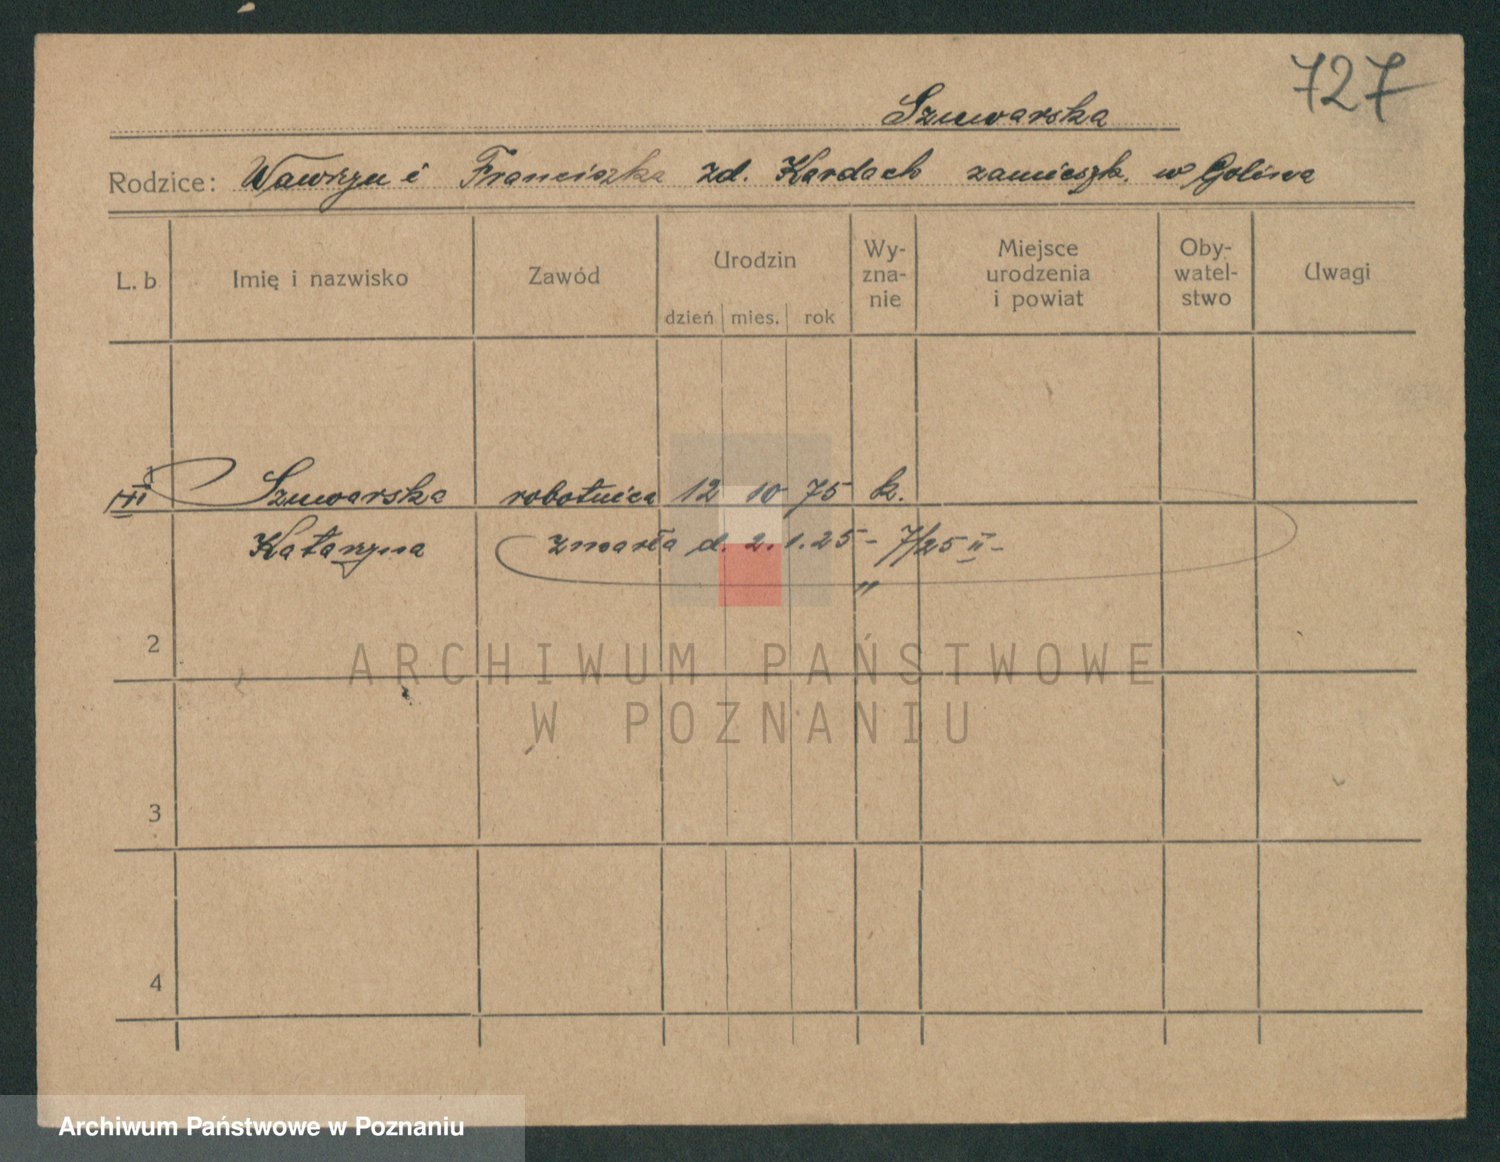 727
Szuwarska
Rodzice: Wawrzyn i Franciszka zd. Kardach zamieszk. w Golina
L. b Imię i nazwisko Zawód Urodzin dzień mies. rok Wy-zna-nie Miejsce urodzenia i powiat Oby-watel-stwo Uwagi
1 Szuwarska robotnica 12 10 75 k.
Katarzyna zmarła d. 2. 1. 25 - 7/25 II -
2
ARCHIWUM PAŃSTWOWE
W POZNANIU
3
4
Archiwum Państwowe w Poznaniu